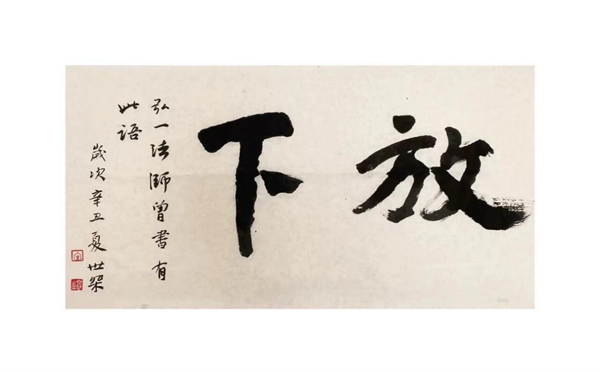 放下
弘一法師曾書有
此語
歲次辛丑夏世桀